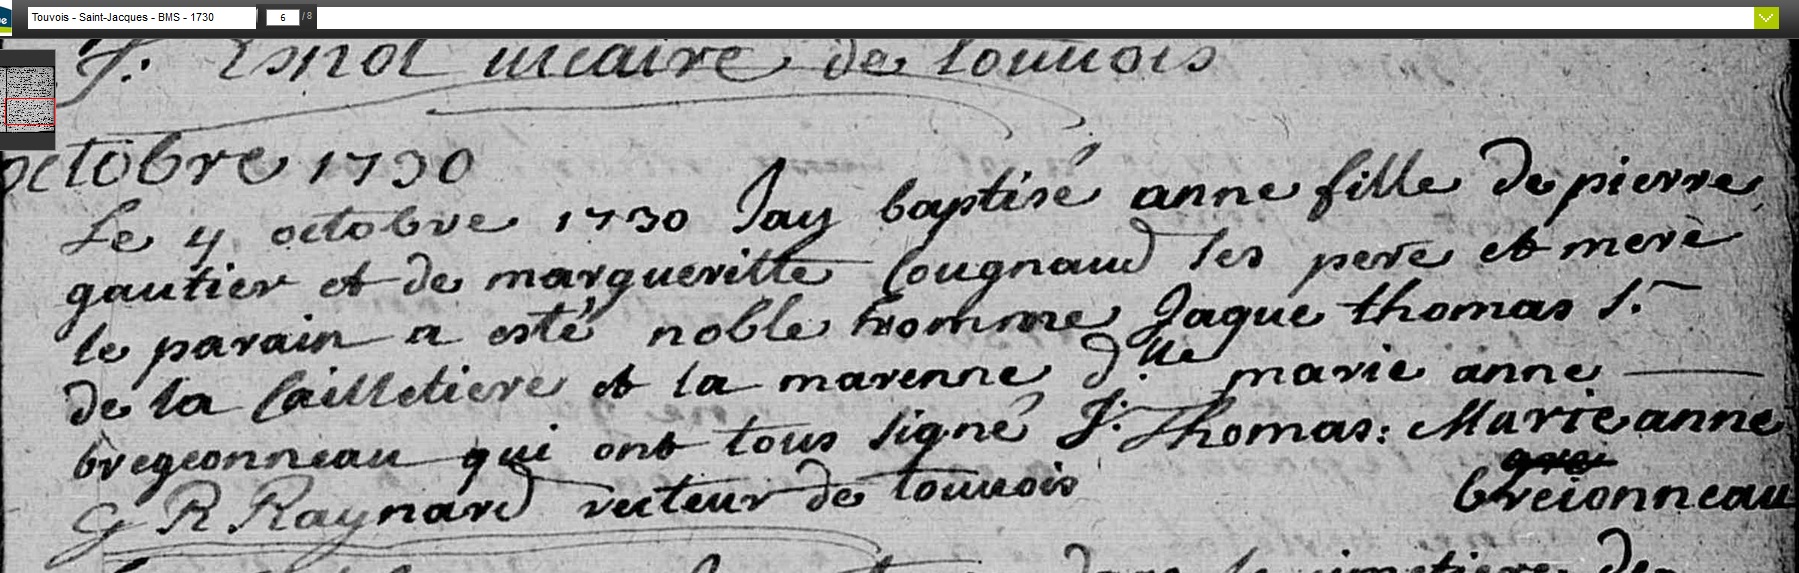 Touvois - Saint-Jacques - BMS - 1730 6 / 8
vicaire de touvois
octobre 1730
Le 4 octobre 1730 Jay baptisé anne fille de pierre
gautier et de margueritte Cougnaud ses pere et merè
le parain a esté noble homme Jaque thomas S.r
de la Cailletiere et la marenne d.lle marie anne
bregeonneau qui ont tous signé J. Thomas: Marie anne
G R Raynard recteur de touvois breionneau